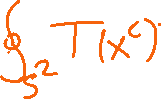 ∮_{S^2} T(x^c)